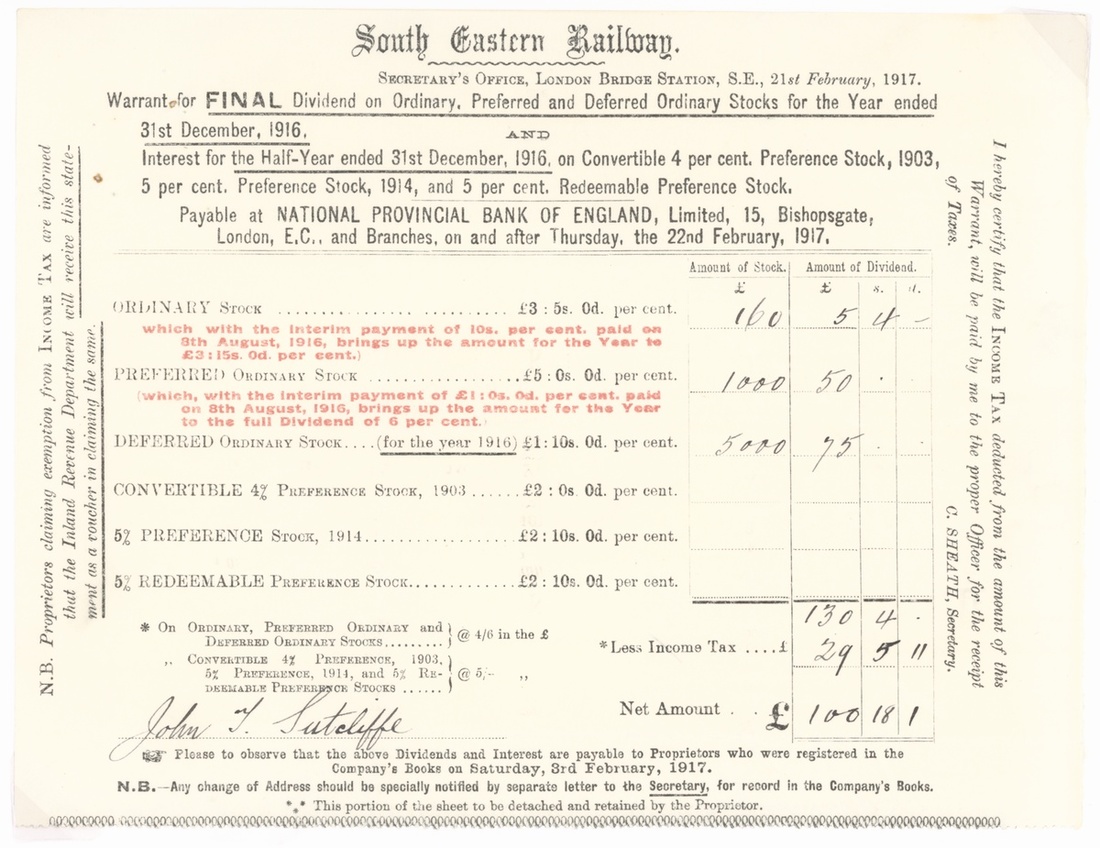 South Eastern Railway.
Secretary's Office, London Bridge Station, S.E., 21st February, 1917.
Warrant for FINAL Dividend on Ordinary, Preferred and Deferred Ordinary Stocks for the Year ended
31st December, 1916,
AND
Interest for the Half-Year ended 31st December, 1916, on Convertible 4 per cent. Preference Stock, 1903,
5 per cent. Preference Stock, 1914, and 5 per cent. Redeemable Preference Stock.
Payable at NATIONAL PROVINCIAL BANK OF ENGLAND, Limited, 15, Bishopsgate,
London, E.C., and Branches, on and after Thursday, the 22nd February, 1917.
Amount of Stock. Amount of Dividend.
£ £ s. d.
ORDINARY Stock .................. £3 : 5s. 0d. per cent. 160 5 4 –
which with the interim payment of 10s. per cent. paid on
8th August, 1916, brings up the amount for the Year to
£3:15s. 0d. per cent.)
PREFERRED Ordinary Stock .................. £5 : 0s. 0d. per cent. 1000 50 . .
(which, with the interim payment of £1:0s. 0d. per cent. paid
on 8th August, 1916, brings up the amount for the Year
to the full Dividend of 6 per cent.)
DEFERRED Ordinary Stock.... (for the year 1916) £1 : 10s. 0d. per cent. 5000 75 . .
CONVERTIBLE 4% Preference Stock, 1903 ...... £2 : 0s. 0d. per cent.
5% PREFERENCE Stock, 1914.................. £2 : 10s. 0d. per cent.
5% REDEEMABLE Preference Stock............. £2 : 10s. 0d. per cent.
130 4 .
* On Ordinary, Preferred Ordinary and
Deferred Ordinary Stocks......... @ 4/6 in the £
*Less Income Tax ....£ 29 5 11
,, Convertible 4% Preference, 1903,
5% Preference, 1914, and 5% Re-
deemable Preference Stocks ...... @ 5/- ,,
Net Amount . . £ 100 18 1
John T. Sutcliffe
☞ Please to observe that the above Dividends and Interest are payable to Proprietors who were registered in the
Company's Books on Saturday, 3rd February, 1917.
N.B.—Any change of Address should be specially notified by separate letter to the Secretary, for record in the Company's Books.
*.* This portion of the sheet to be detached and retained by the Proprietor.
N.B. Proprietors claiming exemption from Income Tax are informed
that the Inland Revenue Department will receive this state-
ment as a voucher in claiming the same.
I hereby certify that the Income Tax deducted from the amount of this
Warrant, will be paid by me to the proper Officer for the receipt
of Taxes.
C. SHEATH, Secretary.